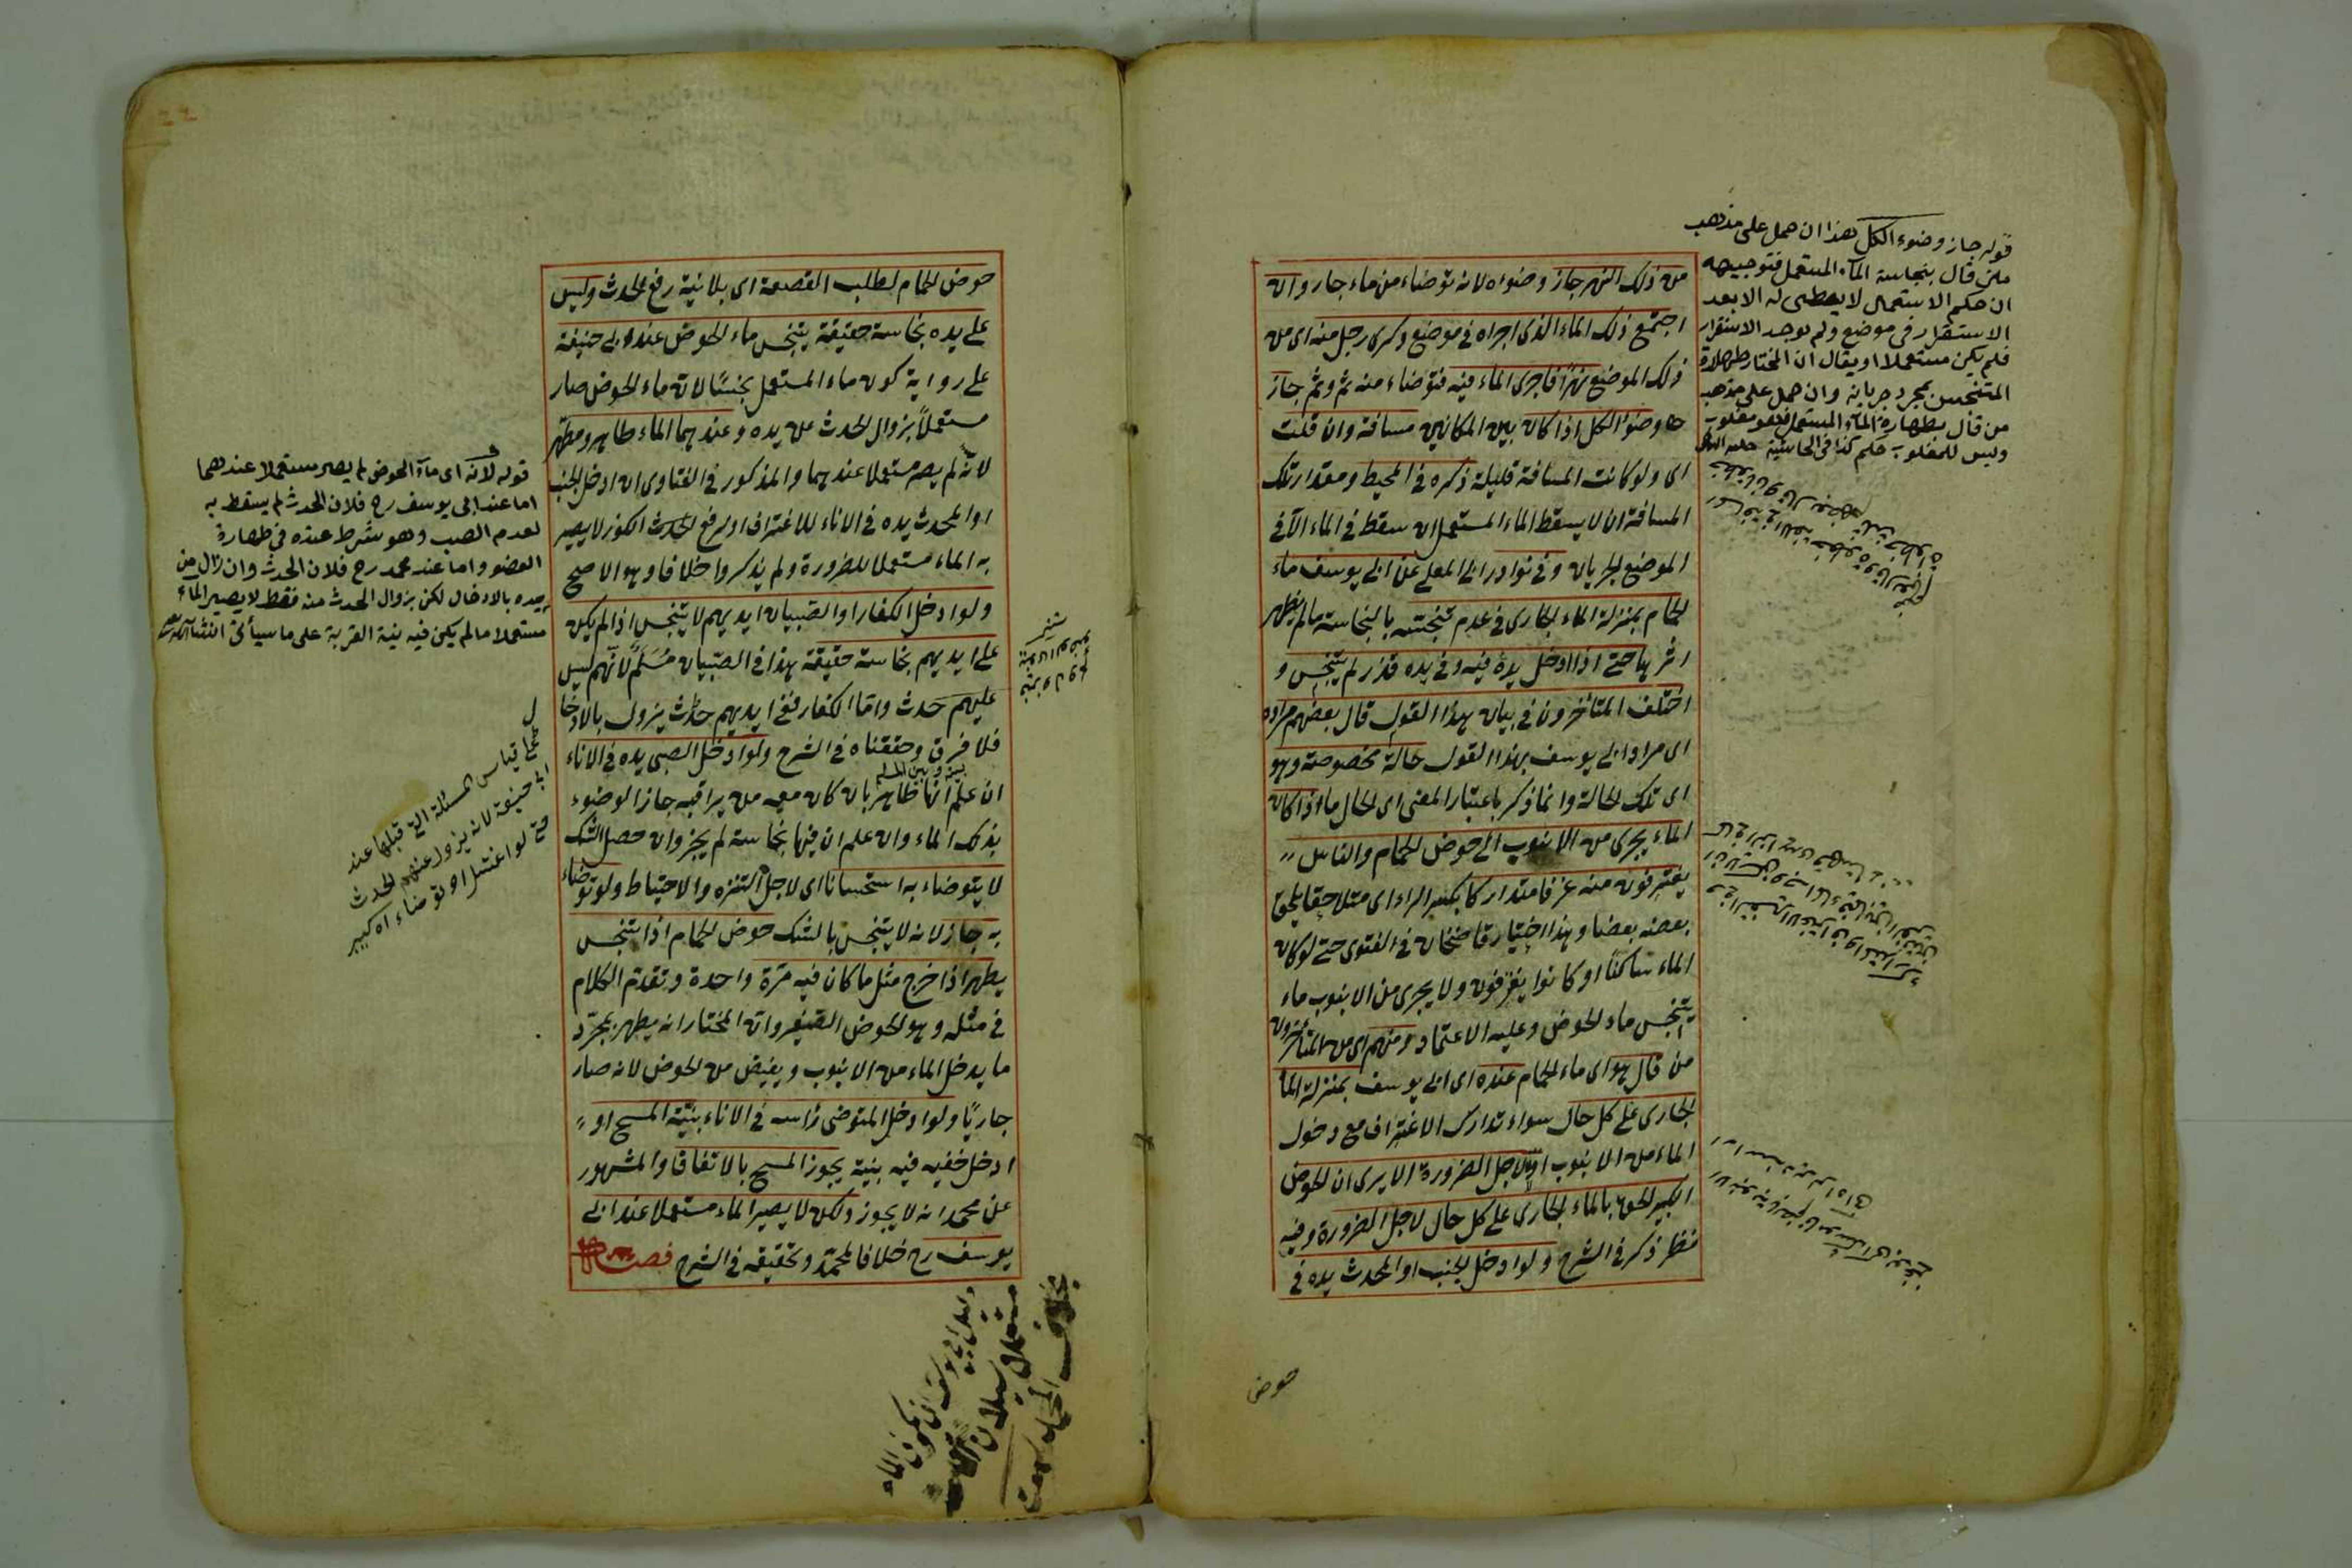 من ذلك النهر جاز وضوءه لانه توضاء من ماء جار وان
اجتمع ذلك الماء الذى اجراه فى موضع وكرى رجل منه اى من
ذلك الموضع نهرًا فاجرى الماء فيه فتوضاء منه ثم وثم جاز
وضوء الكل اذا كان بين المكانين مسافة وان قلت
اى ولو كانت المسافة قليلة ذكره فى المحيط ومقدار تلك
المسافة ان لا يسقط الماء المستعمل ان سقط فى الماء الآ فى
الموضع الجريان وفى نوادر ابى المعلى عن ابى يوسف ماء
الحمام بمنزلة الماء الجارى فى عدم تنجسه بالنجاسة مالم يظهر
اثرها حتى اذا ادخل يده فيه وفى يده قذر لم يتنجس و
اختلف المتاخرون فى بيان هذا القول قال بعضهم مراده
اى مراد ابى يوسف بهذا القول حالة مخصوصة وهو
اى تلك الحالة وانما ذكر باعتبار المعنى اى الحال ما اذا كان
الماء يجرى من الانبوب الى حوض الحمام والناس
يغترفون منه غرفا متداركا بكسر الراء اى متلاحقا يلحق
بعضه بعضا وهذا اختيار قاضخان فى الفتوى حتى لو كان
الماء ساكنًا او كانوا يغترفون ولا يجرى من الانبوب ماء
يتنجس ماء الحوض وعليه الاعتماد ومنهم اى من المتاخرون
من قال هو اى ماء الحمام عنده اى ابى يوسف بمنزلة الماء
الجارى على كل حال سواء تدارك الاغتراف مع دخول
الماء من الانبوب اولا لاجل الضرورة الا يرى ان الحوض
الكبير الحق بالماء الجارى على كل حال لاجل الضرورة وفيه
نظر ذكر فى الشرح ولو ادخل الجنب او المحدث يده فى
حوض
قوله جاز وضوء الكل هذا ان حمل على مذهب
من قال بنجاسة المآء المستعمل فتوجيهه
ان حكم الاستعمال لا يعطى له الا بعد
الاستقرار فى موضع ولم يوجد الاستقرار
فلم يكن مستعملا او يقال ان المختار طهارة
المتنجس بمجرد جريانه وان حمل على مذهب
من قال بطهارة المآء المستعمل فهو مغلوب
وليس للمغلوب حكم كذا فى الحاشية
حوض الحمام لطلب القصعة اى بلا نية رفع الحدث وليس
على يده نجاسة حقيقة يتنجس ماء الحوض عند ابى حنيفة
على رواية كون ماء المستعمل نجسًا لان ماء الحوض صار
مستعملاً بزوال الحدث عن يده وعندهما الماء طاهر ومطهر
لانه لم يصر مستعملا عندهما والمذكور فى الفتاوى ان ادخل الجنب
او المحدث يده فى الاناء للاغتراف او لرفع الكوز لا يصير
به الماء مستعملا للضرورة ولم يذكروا خلافا وهو الاصح
ولو ادخل الكفار او الصبيان ايديهم لا يتنجس اذا لم يكن
على ايديهم نجاسة حقيقة هذا فى الصبيان مُسَلَّم لانهم ليس
عليهم حدث واما الكفار ففى ايديهم حدث يزول بالادخا
فلا فرق وحققناه فى الشرح ولو ادخل الصبى يده فى الاناء
ان علم انها طاهر بان كان معه من يراقبه جاز الوضوء
بذلك الماء وان علم ان فيها نجاسة لم يجز وان حصل الشك
لا يتوضاء به استحسانا اى لاجل التنزه والاحتياط ولو توضاء
به جاز لانه لا يتنجس بالشك حوض الحمام اذا تنجس
يطهر اذا خرج مثل ما كان فيه مرّة واحدة وتقدم الكلام
فى مثله وهو الحوض الصغير وان المختار انه يطهر بمجرّد
ما يدخل الماء من الانبوب ويفيض من الحوض لانه صار
جاريًا ولو ادخل المتوضى رأسه فى الاناء بنيّة المسح او
ادخل خفيه فيه بنية يجوز المسح بالاتفاقا والمشهور
عن محمد انه لا يجوز ولكن لا يصير الماء مستعملا عند ابى
يوسف رح خلافا لمحمّد وتحقيقه فى الشرح فصل
قوله لانه اى مآء الحوض لم يصير مستعملا عندهما
اما عند ابى يوسف رح فلان الحدث لم يسقط به
لعدم الصب وهو شرط عنده فى طهارة
العضو واما عند محمد رح فلان الحدث وان زال من
يده بالادخال لكن بزوال الحدث منه فقط لا يصير الماء
مستعملا مالم يكن فيه نية القربة على ما سيأتى
قياس المسئلة التى قبلها عند
ابى حنيفة لانه يزول عنهم الحدث
حتى لو اغتسل او توضاء